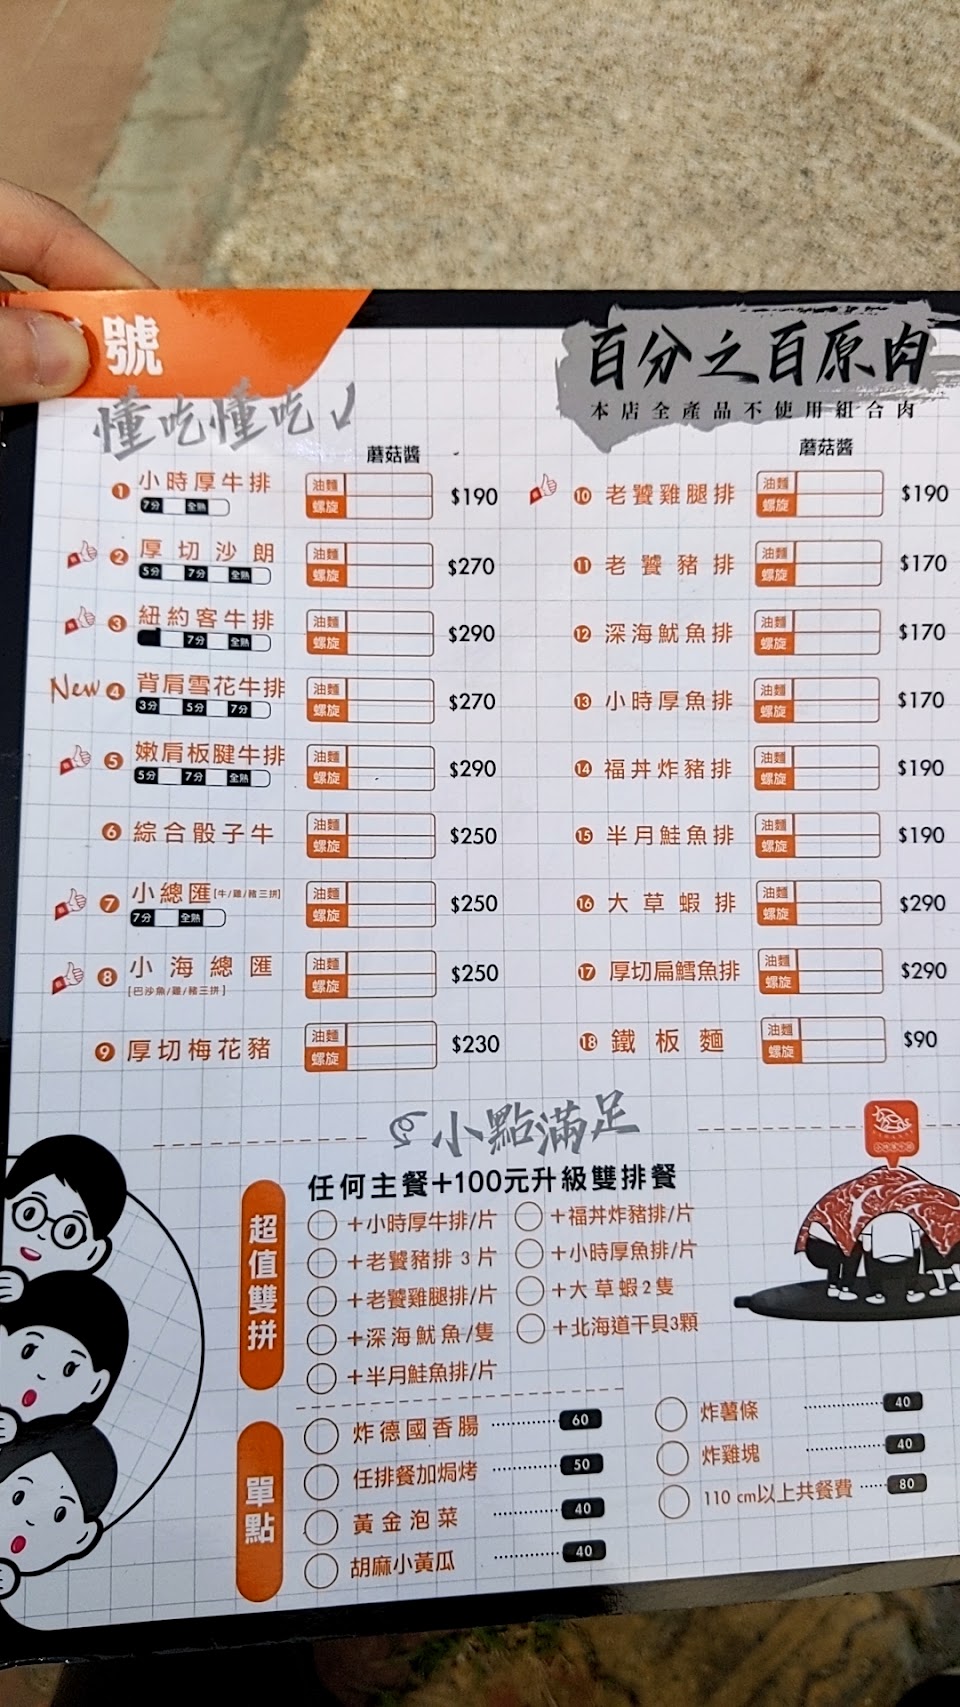 號
懂吃懂吃
百分之百原肉
本店全產品不使用組合肉
蘑菇醬
1 小時厚牛排 油麵 螺旋 $190
7分 全熟
2 厚切沙朗 油麵 螺旋 $270
5分 7分 全熟
3 紐約客牛排 油麵 螺旋 $290
7分 全熟
New 4 背肩雪花牛排 油麵 螺旋 $270
3分 5分 7分
5 嫩肩板腱牛排 油麵 螺旋 $290
5分 7分 全熟
6 綜合骰子牛 油麵 螺旋 $250
7 小總匯 [牛/雞/豬三拼] 油麵 螺旋 $250
7分 全熟
8 小海總匯 油麵 螺旋 $250
[巴沙魚/雞/豬三拼]
9 厚切梅花豬 油麵 螺旋 $230
蘑菇醬
10 老饕雞腿排 油麵 螺旋 $190
11 老饕豬排 油麵 螺旋 $170
12 深海魷魚排 油麵 螺旋 $170
13 小時厚魚排 油麵 螺旋 $170
14 福丼炸豬排 油麵 螺旋 $190
15 半月鮭魚排 油麵 螺旋 $190
16 大草蝦排 油麵 螺旋 $290
17 厚切扁鱈魚排 油麵 螺旋 $290
18 鐵板麵 油麵 螺旋 $90
小點滿足
超值雙拼
任何主餐+100元升級雙排餐
+小時厚牛排/片
+老饕豬排 3片
+老饕雞腿排/片
+深海魷魚/隻
+半月鮭魚排/片
+福丼炸豬排/片
+小時厚魚排/片
+大草蝦2隻
+北海道干貝3顆
單點
炸德國香腸 60
任排餐加焗烤 50
黃金泡菜 40
胡麻小黃瓜 40
炸薯條 40
炸雞塊 40
110 cm以上共餐費 80